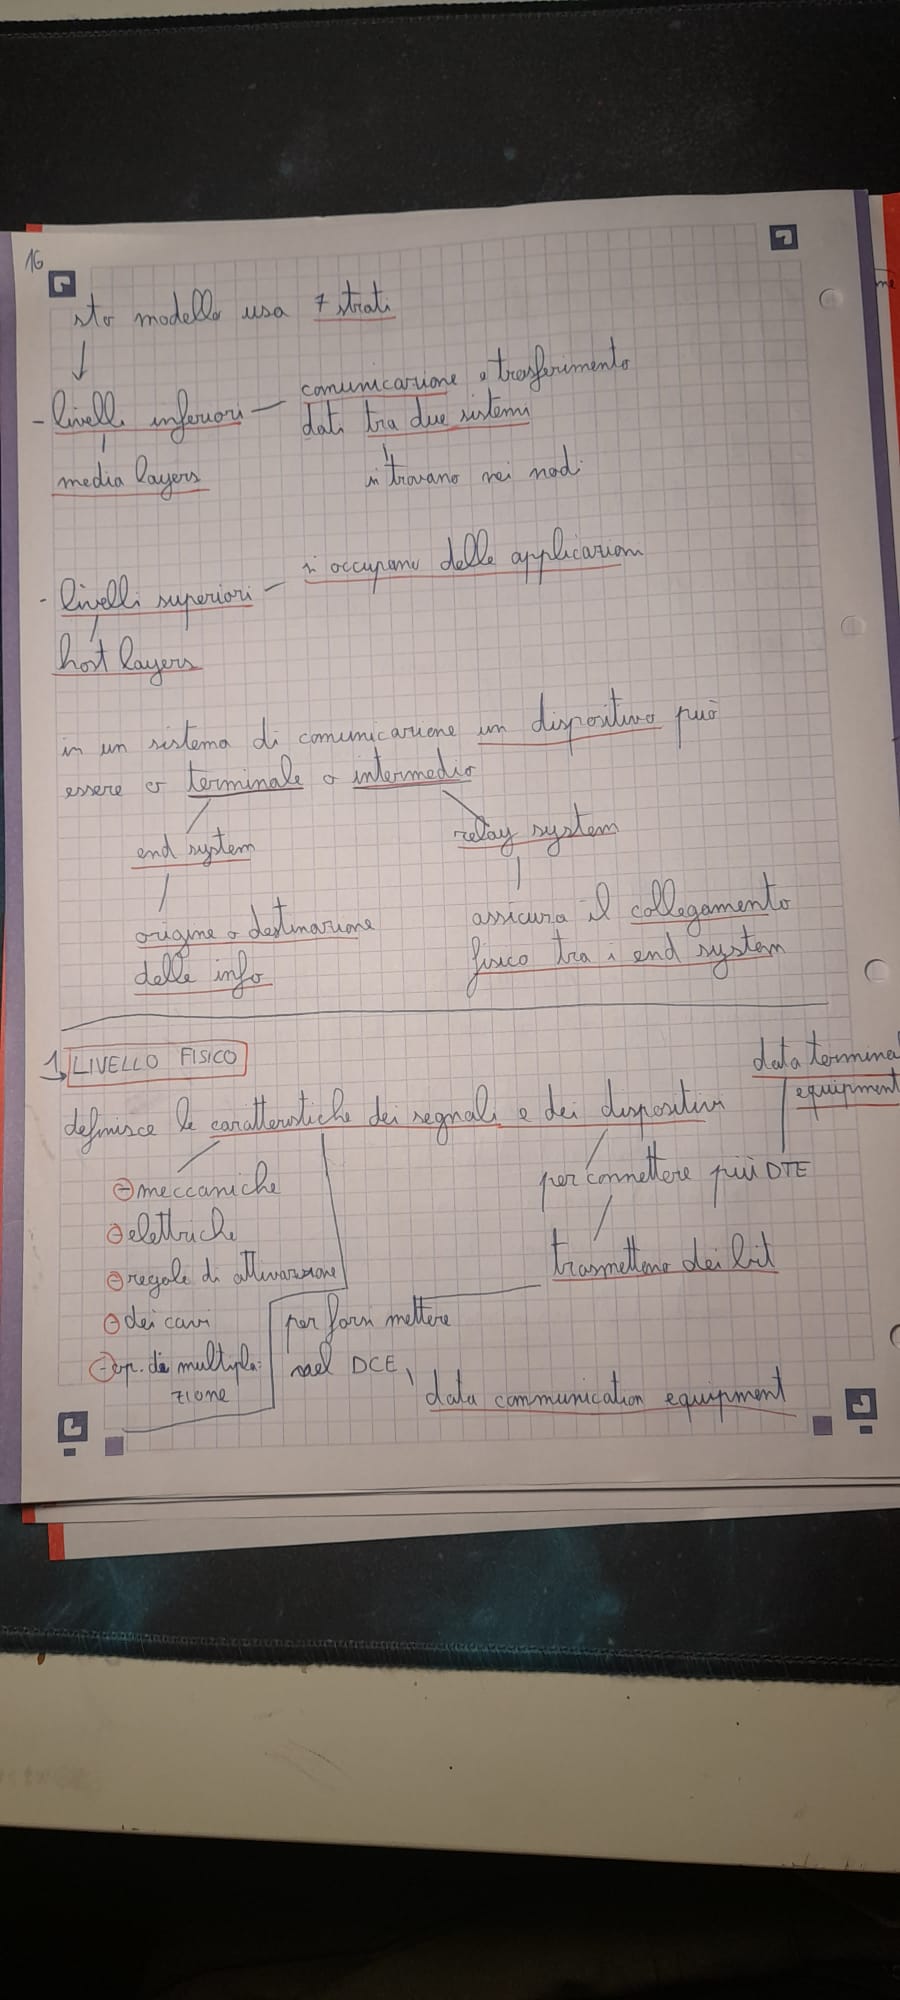 16
sto modello usa 7 strati
- livelli inferiori — comunicazione e trasferimento
dati tra due sistemi
media layers
si trovano nei nodi
- livelli superiori — si occupano delle applicazioni
host layers
in un sistema di comunicazione un dispositivo può
essere o terminale o intermedio
end system
relay system
origine o destinazione
delle info
assicura il collegamento
fisico tra i end system
1 LIVELLO FISICO
data termina
equipment
definisce le caratteristiche dei segnali e dei dispositivi
meccaniche
elettriche
regole di attivazione
dei cavi
op. di multipla-
zione
per connettere più DTE
trasmettono dei bit
per farsi mettere
nel DCE
data communication equipment